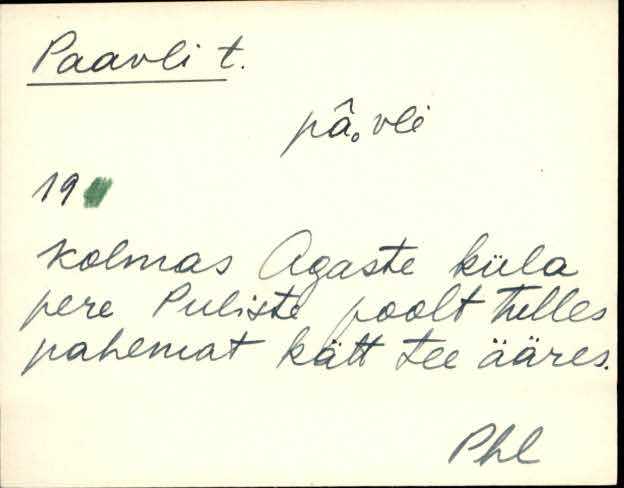 Paavli t.
pâ₀vli
19
Kolmas Agaste küla
pere Puliste poolt tulles
pahemat kätt tee ääres.
Phl